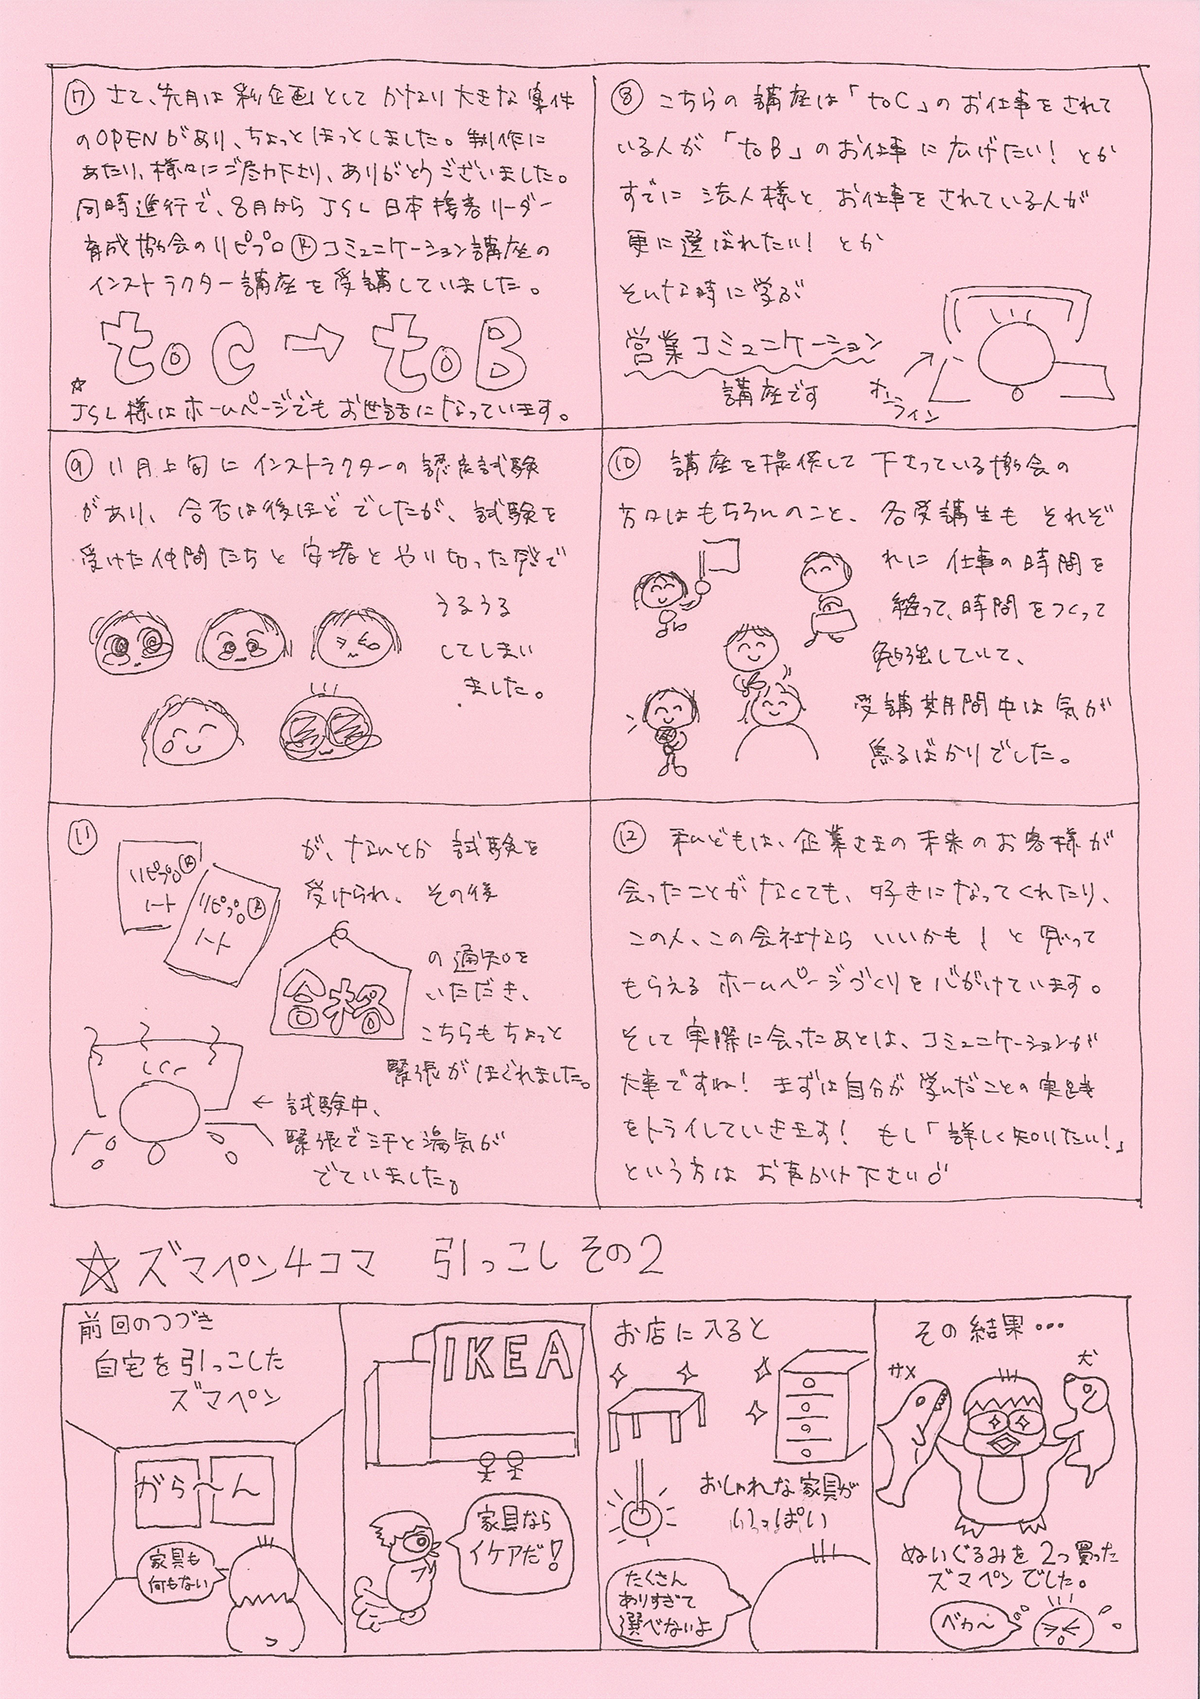 ⑦ さて、先月は新企画としてかなり大きな案件
のOPENがあり、ちょっとほっとしました。制作に
あたり、様々にご尽力下さり、ありがとうございました。
同時進行で、8月からJSL日本接客リーダー
育成協会のリピプロⓇコミュニケーション講座の
インストラクター講座を受講していました。
toC→toB
☆
JSL様はホームページでもお世話になっています。
⑧ こちらの講座は「toC」のお仕事をされて
いる人が「toB」のお仕事に広げたい！とか
すでに法人様とお仕事をされている人が
更に選ばれたい！とか
そんな時に学ぶ
営業コミュニケーション
講座です
オンライン
⑨ 11月上旬にインストラクターの認定試験
があり、合否は後ほどでしたが、試験を
受けた仲間たちと安堵とやり切った感で
うるうる
してしまい
ました。
⑩ 講座を提供して下さっている協会の
方々はもちろんのこと、各受講生もそれぞ
れに仕事の時間を
縫って、時間をつくって
勉強していて、
受講期間中は気が
焦るばかりでした。
⑪
リピプロⓇ
ノート
リピプロⓇ
ノート
が、なんとか試験を
受けられ、その後
合格
の通知を
いただき、
こちらもちょっと
緊張がほぐれました。
← 試験中、
緊張で汗と湯気が
でていました。
⑫ 私どもは、企業さまの未来のお客様が
会ったことがなくても、好きになってくれたり、
この人、この会社なら いいかも！と思って
もらえるホームページづくりを心がけています。
そして実際に会ったあとは、コミュニケーションが
大事ですね！まずは自分が学んだことの実践
をトライしていきます！もし「詳しく知りたい！」
という方はお声かけ下さい♪
☆ズマペン4コマ 引っこしその2
前回のつづき
自宅を引っこした
ズマペン
がら〜ん
家具も
何もない
IKEA
家具なら
イケアだ！
お店に入ると
おしゃれな家具が
いっぱい
たくさん
ありすぎて
選べないよ
その結果・・・
サメ
犬
ぬいぐるみを2つ買った
ズマペンでした。
ベカ〜